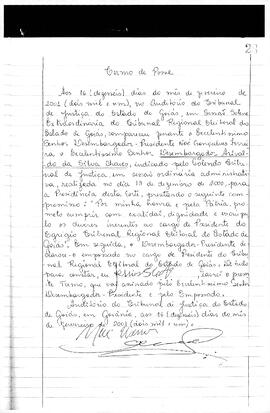 Termo de Posse
Aos 16 (dezesseis) dias do mês de fevereiro de
2001 (dois mil e um), no Auditório do Tribunal
de Justiça do Estado de Goiás, em Sessão Solene
Extraordinária do Tribunal Regional Eleitoral do
Estado de Goiás, compareceu perante o Excelentíssimo
Senhor Desembargador-Presidente Noé Gonçalves Ferrei
ra o Excelentíssimo Senhor Desembargador
da Silva Chaves, indicado pelo Colendo Tribu
nal de Justiça, em sessão ordinária administra
tiva, realizada no dia 13 de dezembro de 2000, para
a Presidência desta Corte, prestando o seguinte com
promisso: "Por minha honra e pela Pátria, pro
meto cumprir com exatidão, dignidade e
os deveres inerentes ao cargo de Presidente do
Egrégio Tribunal Regional Eleitoral do Estado de
Goiás". Em seguida, o Desembargador-Presidente de
clarou-o empossado no cargo de Presidente do Tribu
nal Regional Eleitoral do Estado de Goiás. De tudo
para constar, eu lavrei o presen
te Termo, que vai assinado pelo Excelentíssimo Senhor
Desembargador-Presidente e pelo Empossado.
Auditório do Tribunal de Justiça do Estado
de Goiás, em Goiânia, aos 16 (dezesseis) dias do mês
de fevereiro de 2001 (dois mil e um).